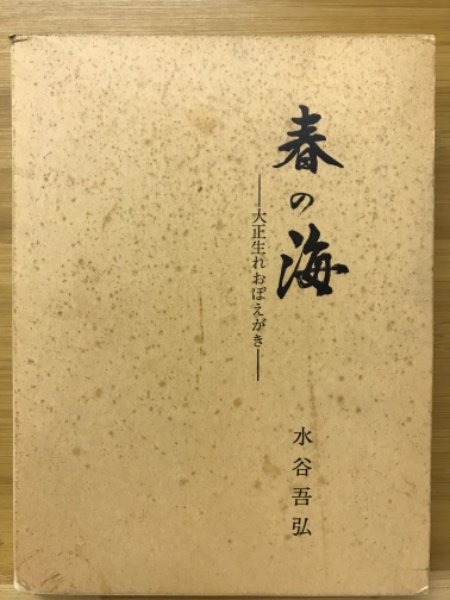 春の海
―大正生れおぼえがき―
水谷吾弘